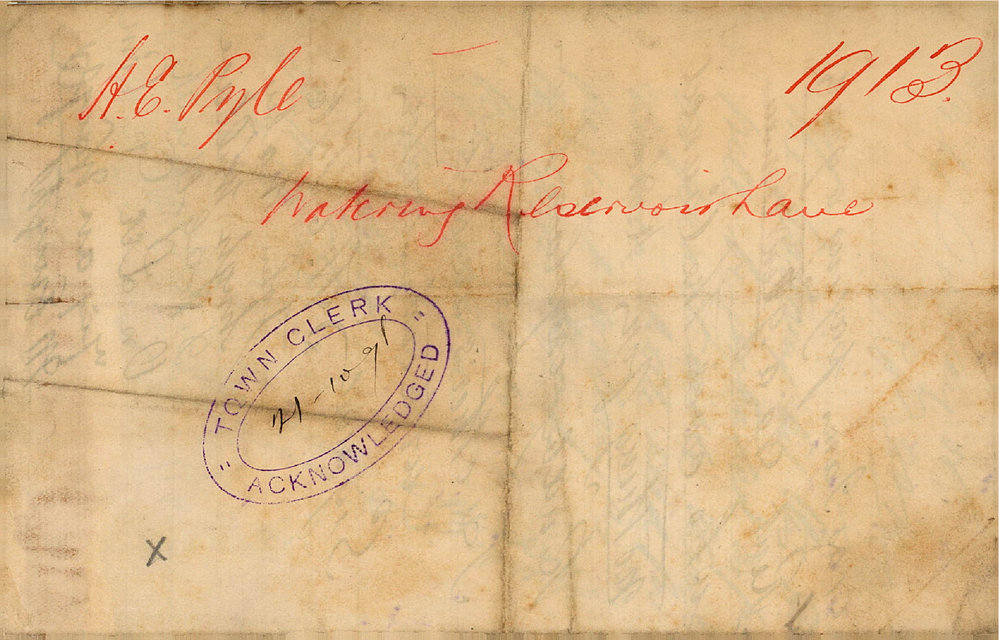 H.E. Pyle 1913.
Reservoir Lane
" TOWN CLERK "
21-10-91
ACKNOWLEDGED
X